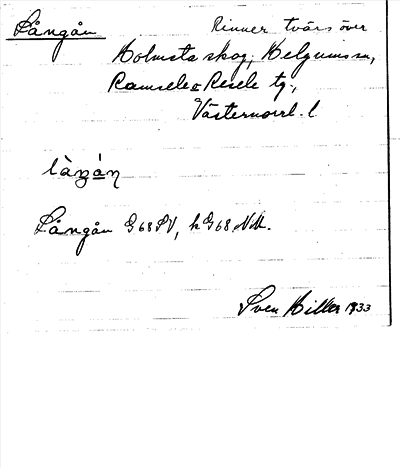 Långån Rinner tvärs över
Holmsta skog, Helgums sn,
Ramsele & Resele tg.,
Västernorrl. l
làŋá̱ŋ
Långån G68SV, h G68 NV.
Sven Hiller 1933